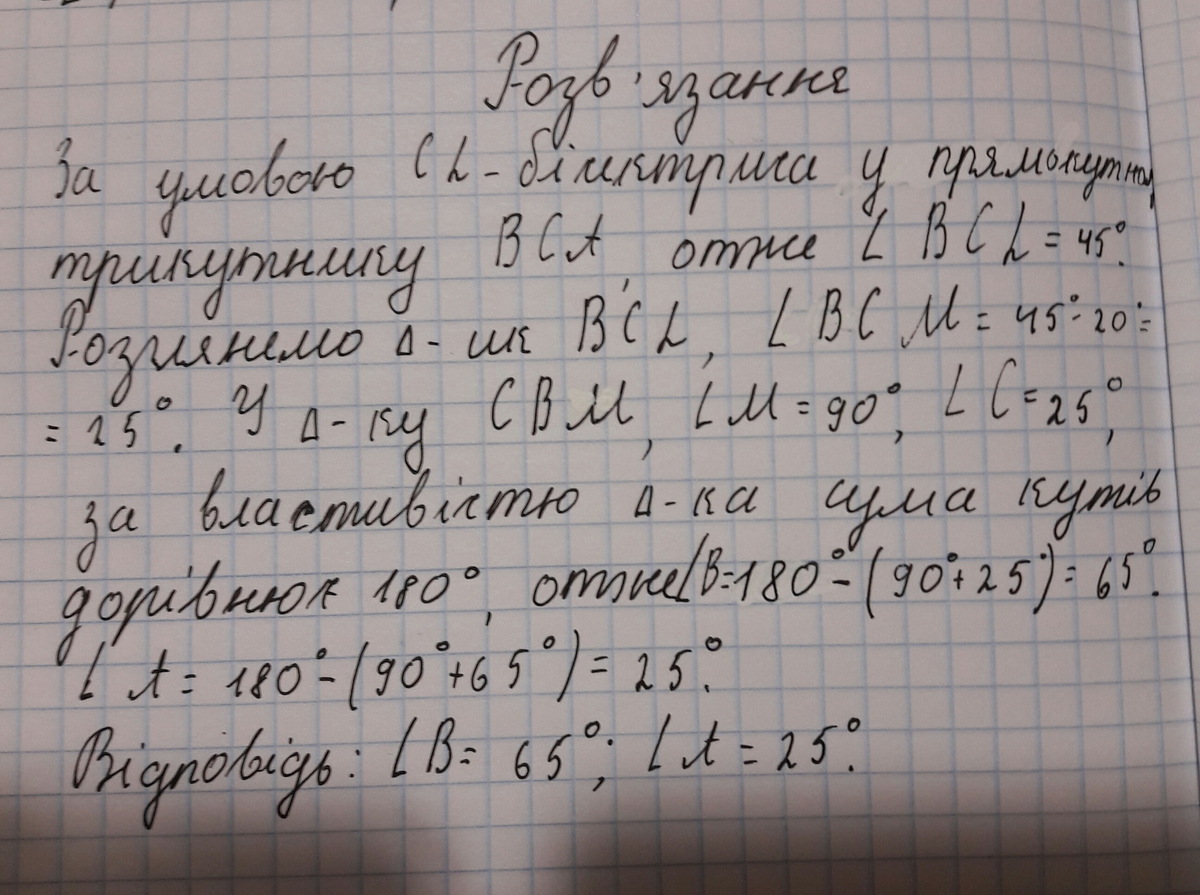 Розв'язання
За умовою CL-бісектриса у прямокутному
трикутнику BCA, отже ∠ BCL = 45°.
Розглянемо Δ-ик BCL, ∠ BCM = 45°-20°=
= 25°. У Δ-ку CBM, ∠M = 90°, ∠C = 25°,
за властивістю Δ-ка сума кутів
дорівнює 180°, отже ∠B=180°-(90°+25°)= 65°.
∠ A = 180°-(90°+65°)= 25°.
Відповідь: ∠B= 65°; ∠A = 25°.